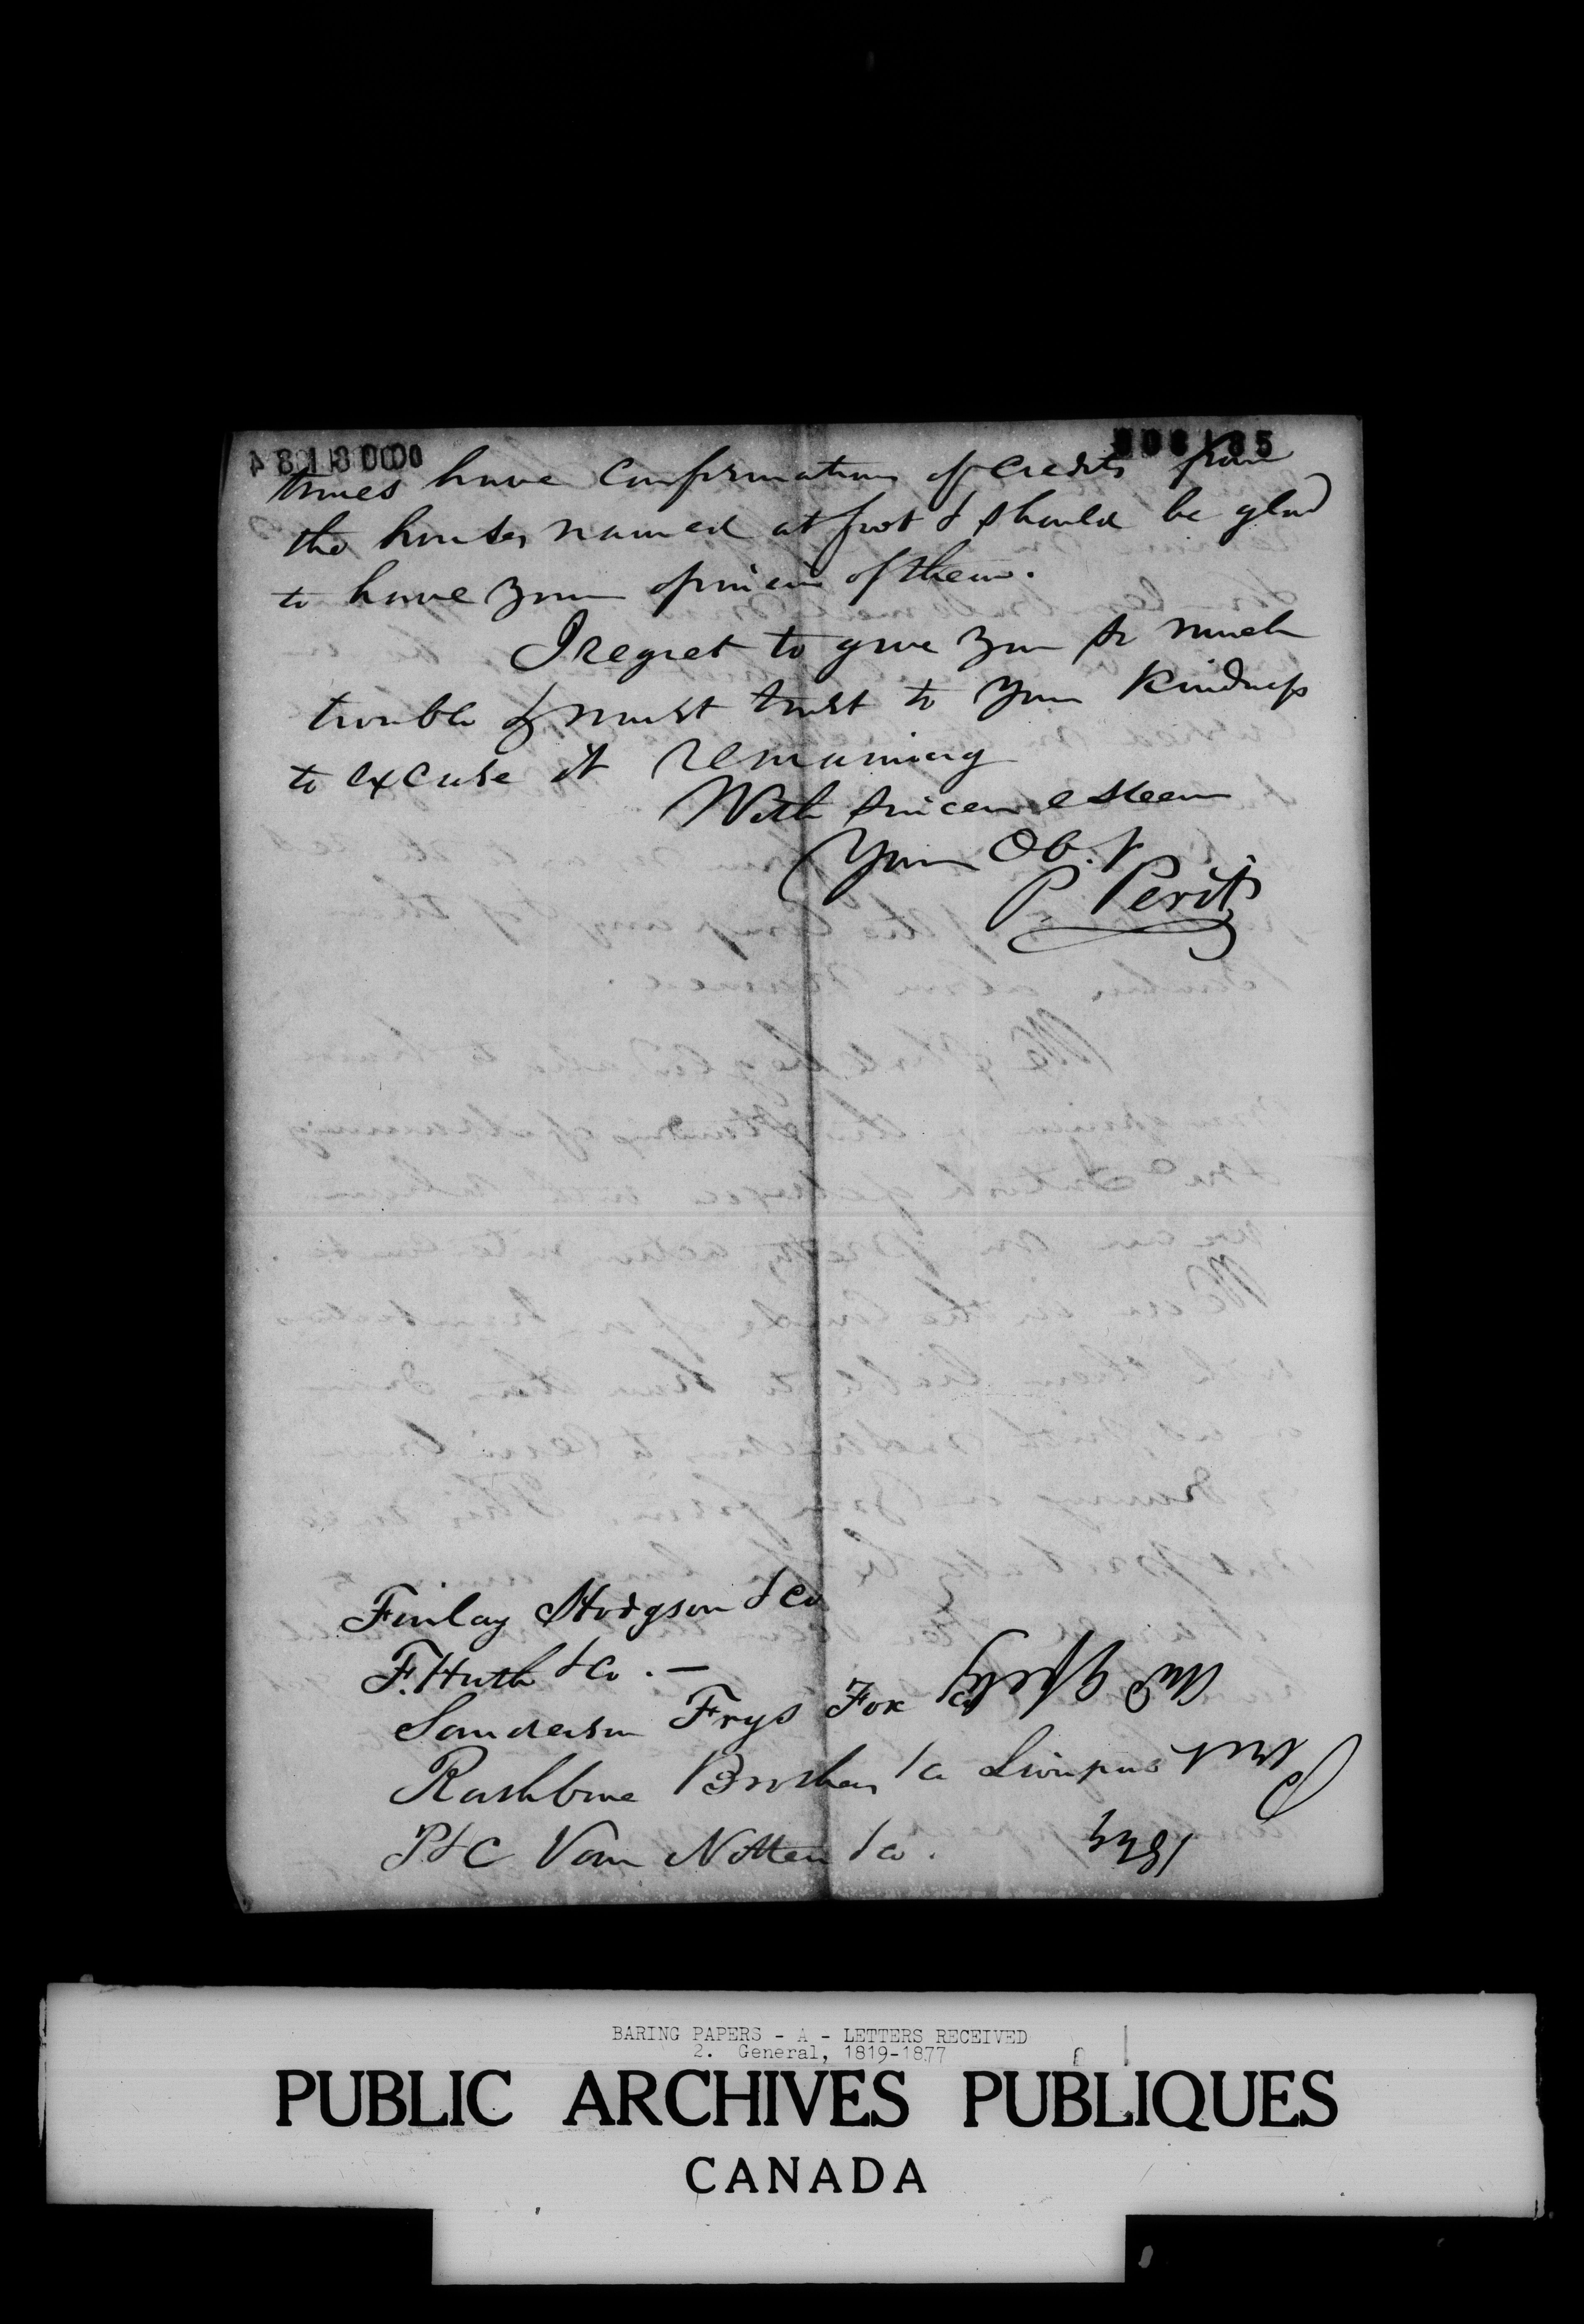 006185
times have confirmation of credits from
the houses named at foot & should be glad
to have your opinion of them.
I regret to give you so much
trouble & must trust to your kindness
to excuse it remaining
With sincere esteem
Your Ob. S
P Perit
Finlay Hodgson & Co
F. Huth & Co. —
Sanderson Frys Fox & Co
Rathbone Brothers & Co Liverpool
P & C Van Notten & Co.
Perit
BARING PAPERS - A - LETTERS RECEIVED
2. General, 1819-1877
PUBLIC ARCHIVES PUBLIQUES
CANADA